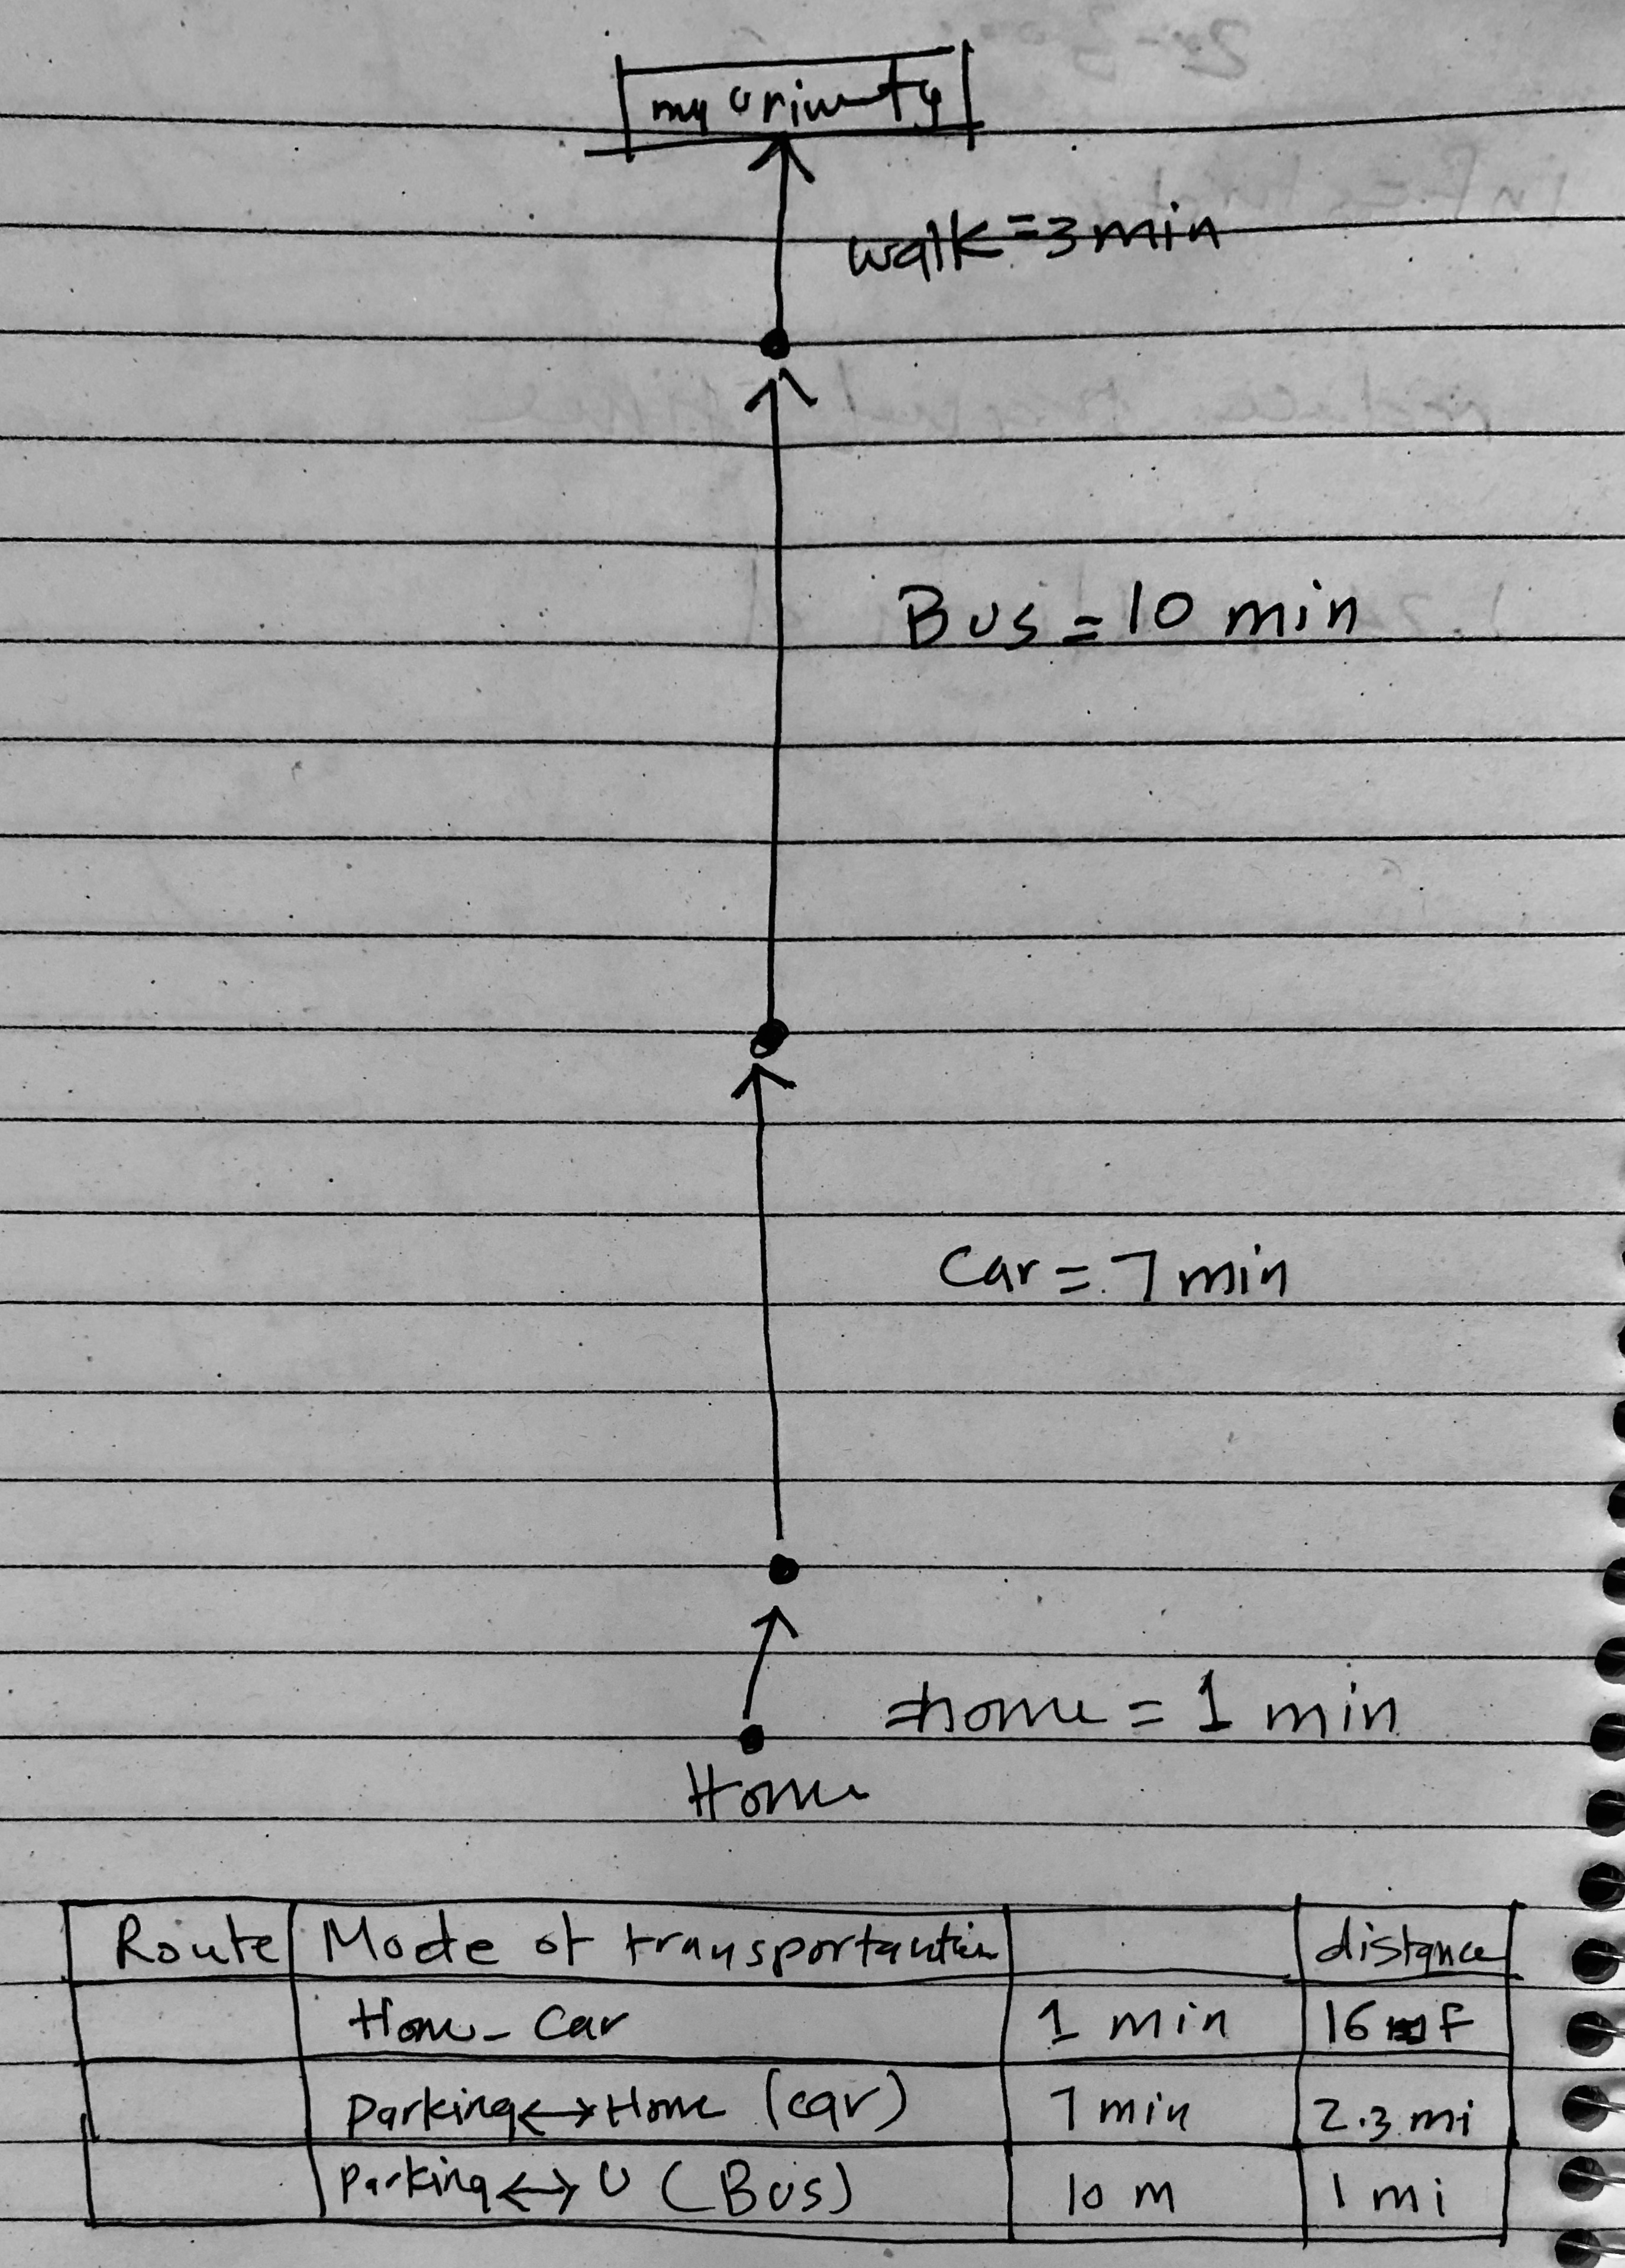 my
walk = 3 min
Bus = 10 min
Car = 7 min
home = 1 min
Home
Route Mode of transportation distance
Home - Car 1 min 16 F
Parking ↔ Home (car) 7 min 2.3 mi
Parking ↔ U (Bus) 10 m 1 mi